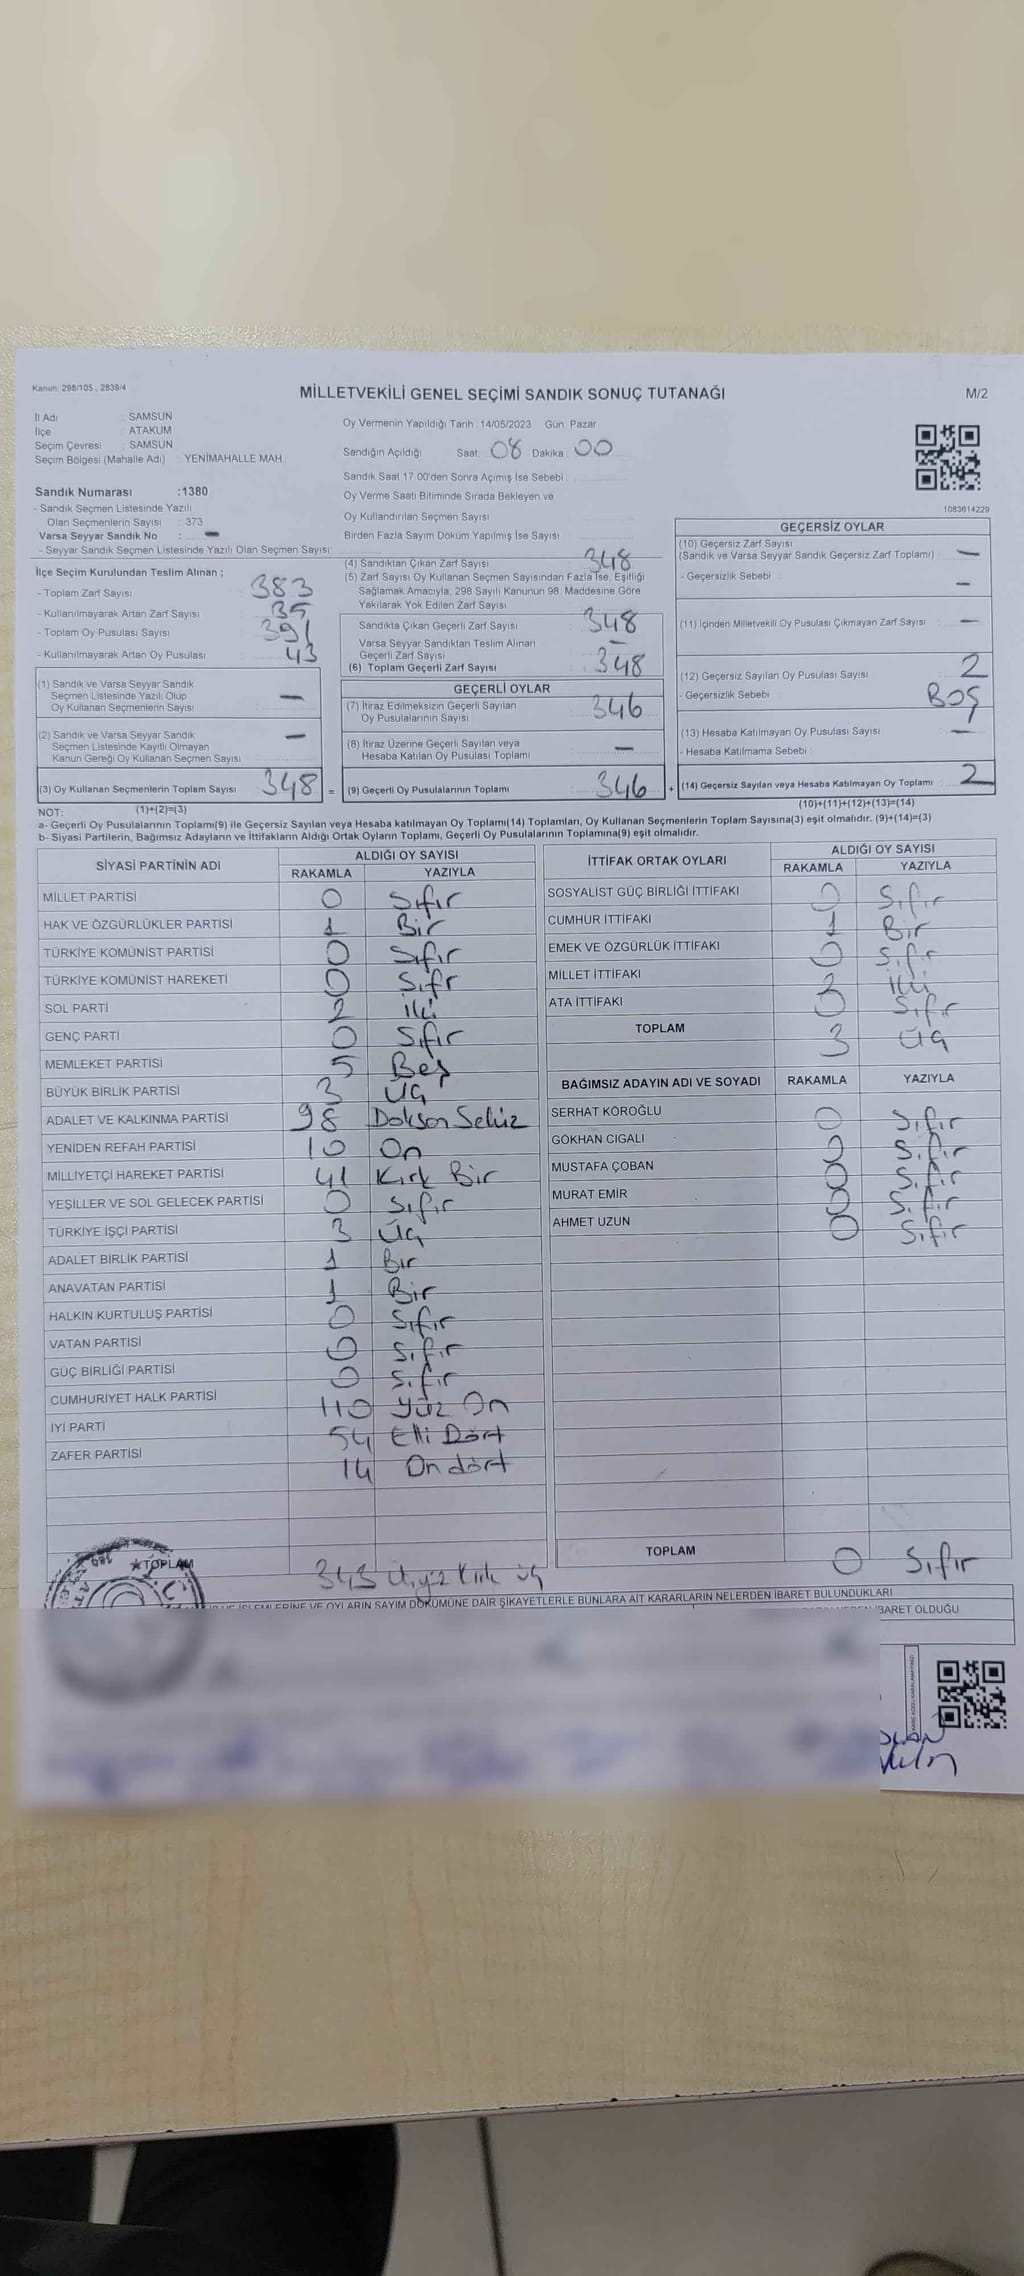 Kanun: 298/105, 2839/4
MİLLETVEKİLİ GENEL SEÇİMİ SANDIK SONUÇ TUTANAĞI
M/2
İl Adı : SAMSUN
İlçe : ATAKUM
Seçim Çevresi : SAMSUN
Seçim Bölgesi (Mahalle Adı) : YENİMAHALLE MAH.
Sandık Numarası :1380
- Sandık Seçmen Listesinde Yazılı
Olan Seçmenlerin Sayısı : 373
Varsa Seyyar Sandık No : -
- Seyyar Sandık Seçmen Listesinde Yazılı Olan Seçmen Sayısı:
Oy Vermenin Yapıldığı Tarih :14/05/2023 Gün Pazar
Sandığın Açıldığı Saat: 08 Dakika : 00
Sandık Saat 17.00'den Sonra Açımış İse Sebebi :
Oy Verme Saati Bitiminde Sırada Bekleyen ve
Oy Kullandırılan Seçmen Sayısı
Birden Fazla Sayım Döküm Yapılmış İse Sayısı :
1083614229
İlçe Seçim Kurulundan Teslim Alınan ;
- Toplam Zarf Sayısı : 383
- Kullanılmayarak Artan Zarf Sayısı : 35
- Toplam Oy Pusulası Sayısı : 391
- Kullanılmayarak Artan Oy Pusulası : 43
(1) Sandık ve Varsa Seyyar Sandık
Seçmen Listesinde Yazılı Olup
Oy Kullanan Seçmenlerin Sayısı : -
(2) Sandık ve Varsa Seyyar Sandık
Seçmen Listesinde Kayıtlı Olmayan
Kanun Gereği Oy Kullanan Seçmen Sayısı : -
(3) Oy Kullanan Seçmenlerin Toplam Sayısı : 348 =
(4) Sandıktan Çıkan Zarf Sayısı : 348
(5) Zarf Sayısı Oy Kullanan Seçmen Sayısından Fazla İse, Eşitliği
Sağlamak Amacıyla, 298 Sayılı Kanunun 98. Maddesine Göre
Yakılarak Yok Edilen Zarf Sayısı :
Sandıkta Çıkan Geçerli Zarf Sayısı : 348
Varsa Seyyar Sandıktan Teslim Alınan
Geçerli Zarf Sayısı : -
(6) Toplam Geçerli Zarf Sayısı : 348
GEÇERLİ OYLAR
(7) İtiraz Edilmeksizin Geçerli Sayılan
Oy Pusulalarının Sayısı : 346
(8) İtiraz Üzerine Geçerli Sayılan veya
Hesaba Katılan Oy Pusulası Toplamı : -
(9) Geçerli Oy Pusulalarının Toplamı : 346 +
GEÇERSİZ OYLAR
(10) Geçersiz Zarf Sayısı
(Sandık ve Varsa Seyyar Sandık Geçersiz Zarf Toplamı) : -
- Geçersizlik Sebebi : -
(11) İçinden Milletvekili Oy Pusulası Çıkmayan Zarf Sayısı : -
(12) Geçersiz Sayılan Oy Pusulası Sayısı : 2
- Geçersizlik Sebebi : BOŞ
(13) Hesaba Katılmayan Oy Pusulası Sayısı : -
- Hesaba Katılmama Sebebi :
(14) Geçersiz Sayılan veya Hesaba Katılmayan Oy Toplamı : 2
NOT: (1)+(2)=(3)
(10)+(11)+(12)+(13)=(14)
a- Geçerli Oy Pusulalarının Toplamı(9) ile Geçersiz Sayılan veya Hesaba katılmayan Oy Toplamı(14) Toplamları, Oy Kullanan Seçmenlerin Toplam Sayısına(3) eşit olmalıdır. (9)+(14)=(3)
b- Siyasi Partilerin, Bağımsız Adayların ve İttifakların Aldığı Ortak Oyların Toplamı, Geçerli Oy Pusulalarının Toplamına(9) eşit olmalıdır.
SİYASİ PARTİNİN ADI ALDIĞI OY SAYISI
RAKAMLA YAZIYLA
MİLLET PARTİSİ 0 Sıfır
HAK VE ÖZGÜRLÜKLER PARTİSİ 1 Bir
TÜRKİYE KOMÜNİST PARTİSİ 0 Sıfır
TÜRKİYE KOMÜNİST HAREKETİ 0 Sıfır
SOL PARTİ 2 İki
GENÇ PARTİ 0 Sıfır
MEMLEKET PARTİSİ 5 Beş
BÜYÜK BİRLİK PARTİSİ 3 Üç
ADALET VE KALKINMA PARTİSİ 98 Doksan Sekiz
YENİDEN REFAH PARTİSİ 10 On
MİLLİYETÇİ HAREKET PARTİSİ 41 Kırk Bir
YEŞİLLER VE SOL GELECEK PARTİSİ 0 Sıfır
TÜRKİYE İŞÇİ PARTİSİ 3 Üç
ADALET BİRLİK PARTİSİ 1 Bir
ANAVATAN PARTİSİ 1 Bir
HALKIN KURTULUŞ PARTİSİ 0 Sıfır
VATAN PARTİSİ 0 Sıfır
GÜÇ BİRLİĞİ PARTİSİ 0 Sıfır
CUMHURİYET HALK PARTİSİ 110 Yüz On
İYİ PARTİ 54 Elli Dört
ZAFER PARTİSİ 14 On dört
TOPLAM 343 Üçyüz Kırk üç
İTTİFAK ORTAK OYLARI ALDIĞI OY SAYISI
RAKAMLA YAZIYLA
SOSYALİST GÜÇ BİRLİĞİ İTTİFAKI 0 Sıfır
CUMHUR İTTİFAKI 1 Bir
EMEK VE ÖZGÜRLÜK İTTİFAKI 0 Sıfır
MİLLET İTTİFAKI 2 İki
ATA İTTİFAKI 0 Sıfır
TOPLAM 3 Üç
BAĞIMSIZ ADAYIN ADI VE SOYADI RAKAMLA YAZIYLA
SERHAT KÖROĞLU 0 Sıfır
GÖKHAN CIGALI 0 Sıfır
MUSTAFA ÇOBAN 0 Sıfır
MURAT EMİR 0 Sıfır
AHMET UZUN 0 Sıfır
TOPLAM 0 Sıfır
OYLARIN SAYIM DÖKÜMÜNE DAİR ŞİKAYETLERLE BUNLARA AİT KARARLARIN NELERDEN İBARET BULUNDUKLARI
İBARET OLDUĞU